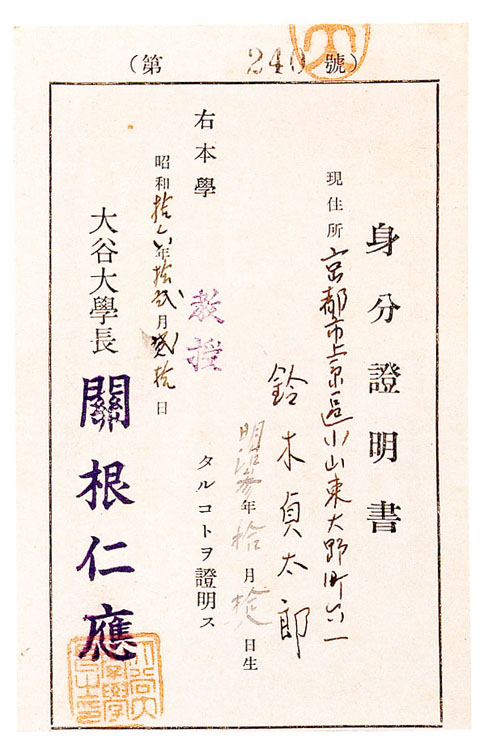 (第 240 號)
身分證明書
現住所 京都市上京區小山東大野町六一
鈴木貞太郎
明治参年拾月 日生
右本學 教授 タルコトヲ證明ス
昭和拾六年拾弐月弐拾日
大谷大學長 關根仁應